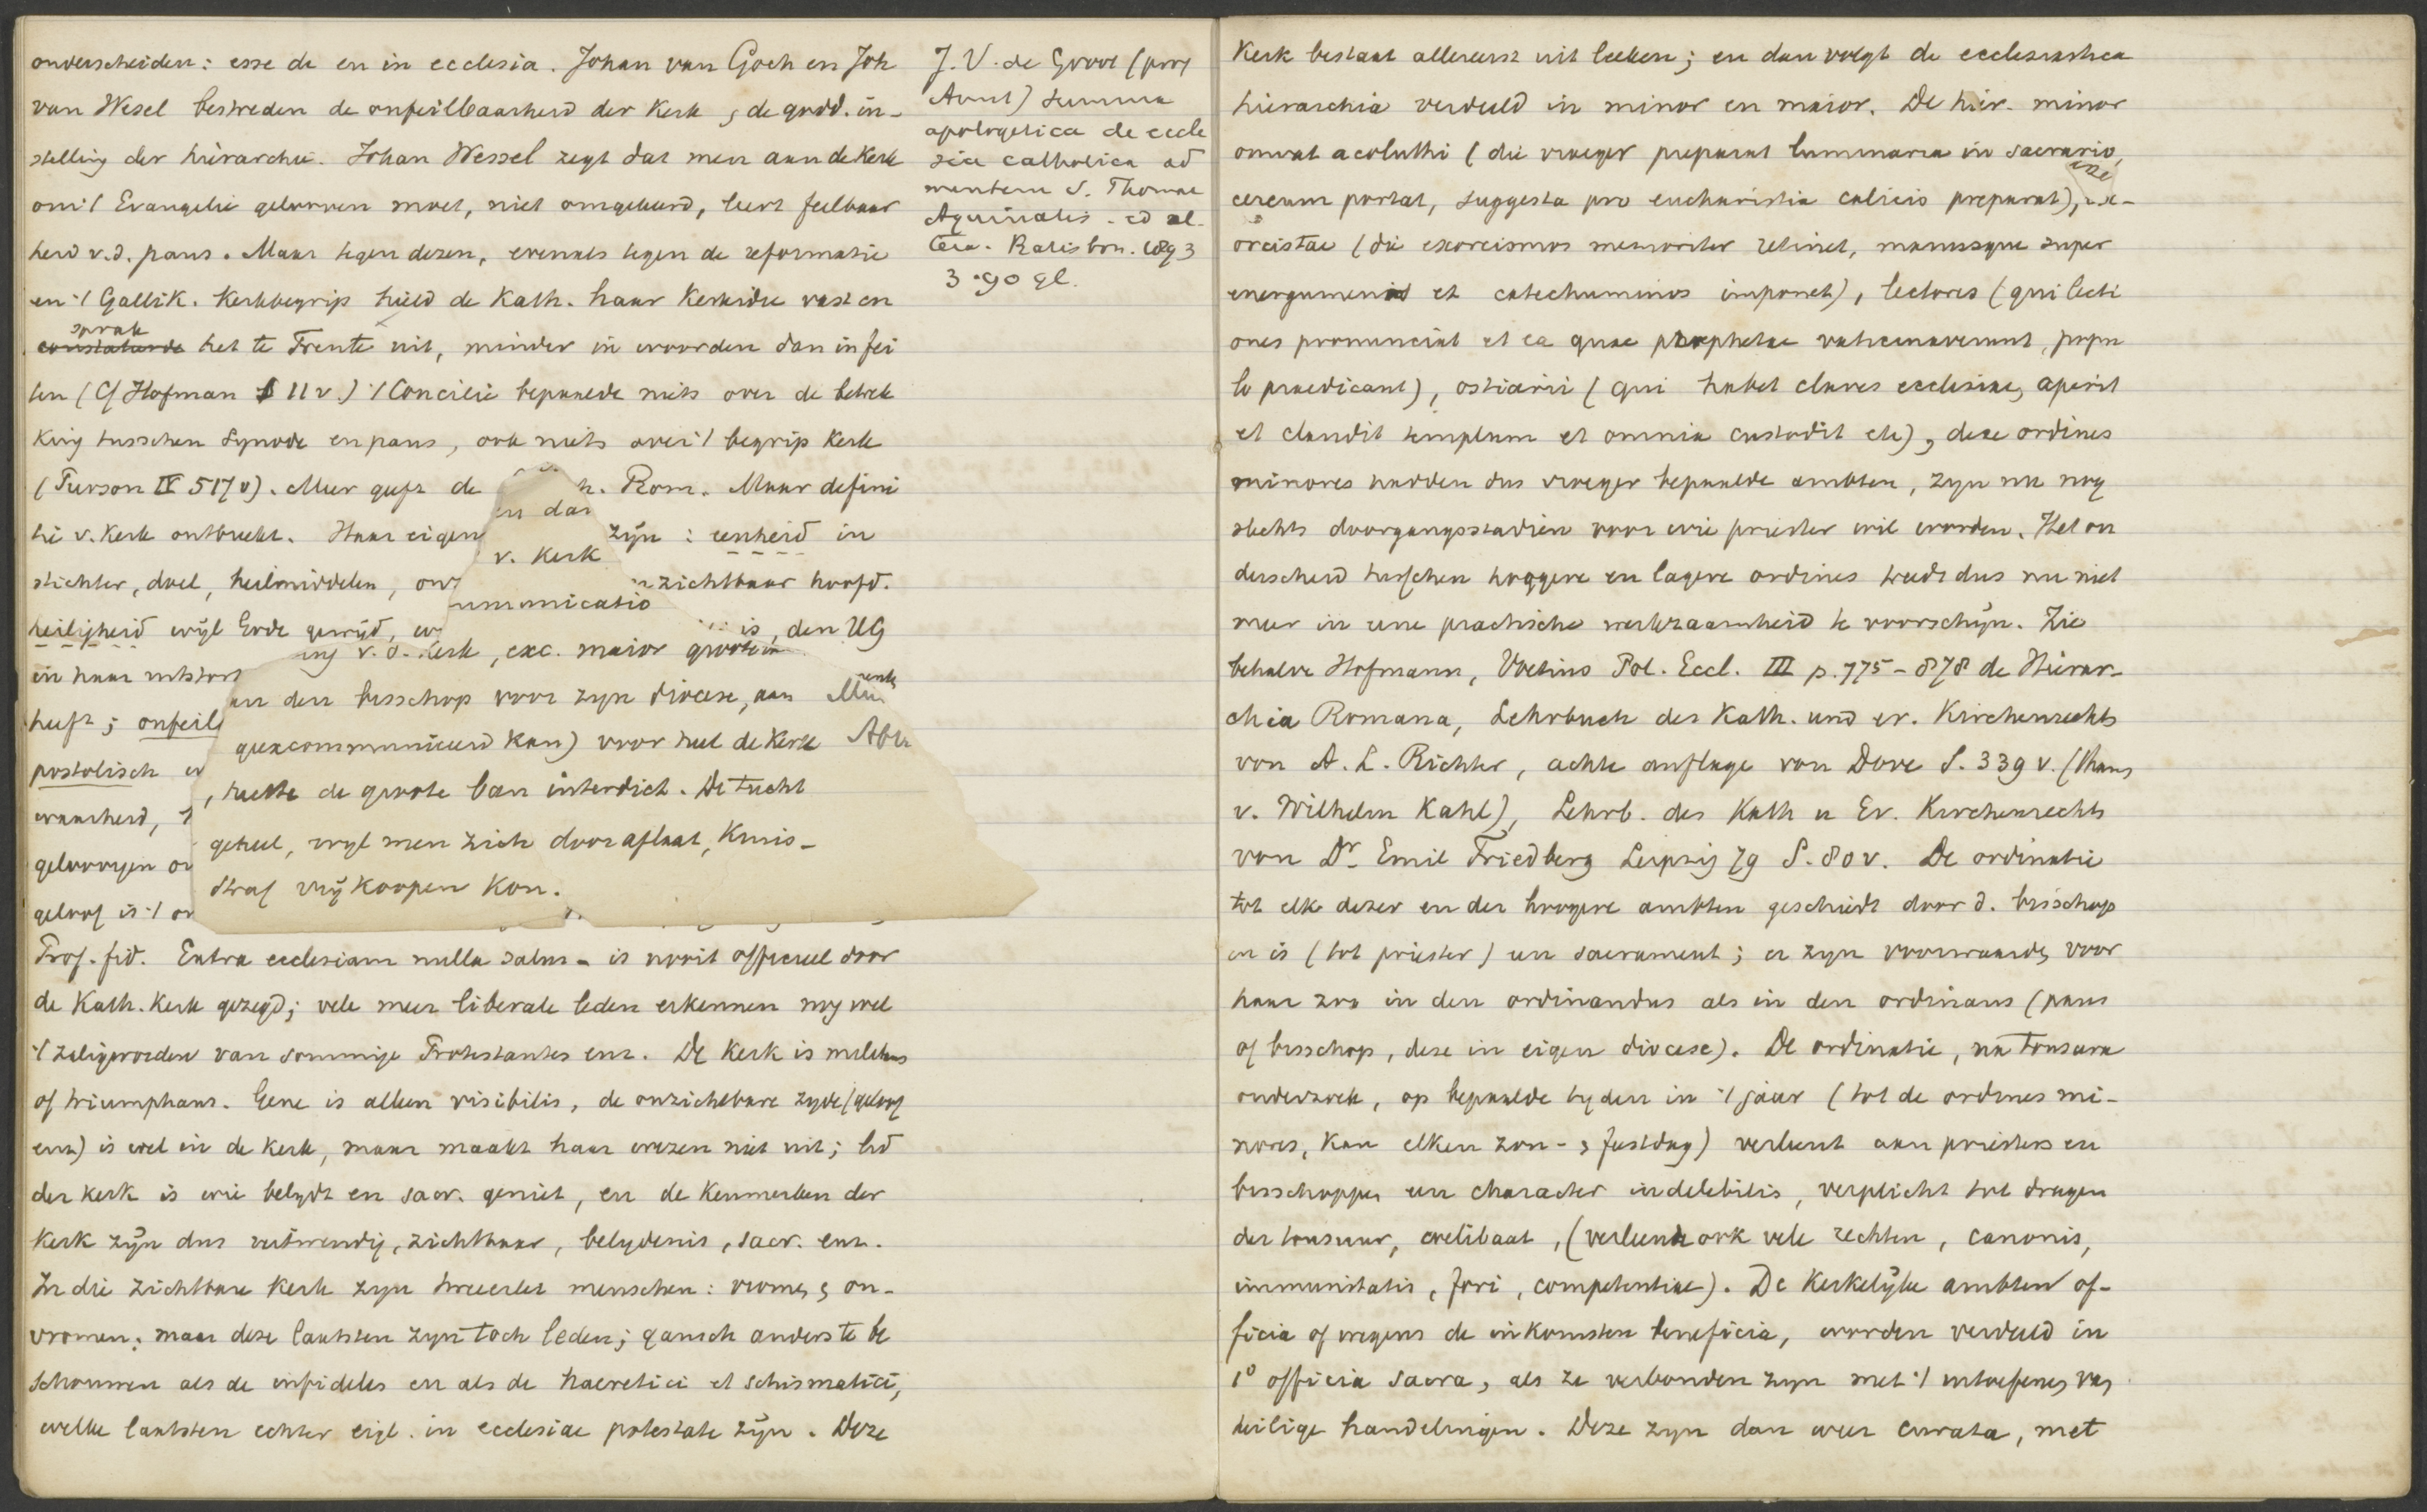 onderscheiden: esse de en in ecclesia. Johan van Goch en Joh
van Wesel bestreden de onfeilbaarheid der Kerk, de godd. in-
stelling der hiërarchie. Johan Wessel zegt dat men aan de Kerk
om 't Evangelie gelooven moet, niet omgekeerd, leert feilbaar
heid v.d. paus. Maar tegen dezen, evenals tegen de reformatie
en 't Gallik. Kerkbegrip hield de Kath. haar Kerkidee vast en
sprak
constateerde het te Trente uit, minder in woorden dan in fei
ten (Cf Hofman § 11 v.) 't Concilie bepaalde niets over de betrek
king tusschen Synode en paus, ook niets over 't begrip Kerk
(Turson IV 517 v). Meer geeft de h. Rom. Maar defini
en dat
tie v. Kerk ontbreekt. Haar eigen zijn: eenheid in
v. Kerk
stichter, doel, heilmiddelen, onz nzichtbaar hoofd.
mmunicatio
heiligheid wijl Gode gewijd, is, den HG
ing v. d. Kerk, exc. maior groote
in haar uitstort
an den bisschop voor zijn diocese, aan
heeft; onfeil
geexcommuniceerd kan) voor heel de Kerk Abr
postolisch
, heette de groote ban interdict. De tucht
waarheid,
geheel, wijl men zich door aflaat, Kruis-
gelooven
straf vrij koopen kon.
geloof is 't on
Prof. fid. Extra ecclesiam nulla salus - is nooit officieel door
de Kath. Kerk gezegd; vele meer liberale leden erkennen nog wel
't zaligworden van sommige Protestanten enz. De Kerk is militans
of triumphans. Gene is alleen visibilis, de onzichtbare zijde (geloof
enz) is wel in de Kerk, maar maakt haar wezen niet uit; lid
der Kerk is wie belijdt en sacr. geniet, en de Kenmerken der
Kerk zijn dus uitwendig, zichtbaar, belijdenis, sacr. enz.
In die zichtbare Kerk zijn tweeërlei menschen: vromen, on-
vromen; maar deze laatsten zijn toch leden; gansch anders te be
schouwen als de infideles en als de haeretici et schismatici,
welke laatsten echter eigl. in ecclesiae potestate zijn. Deze
J. V. de Groot (prof
Amst) Summa
apologetica de eccle
sia catholica ad
mentem S. Thomae
Aquinatis. ed al-
tera. Ratisbon. 1893
3.90 gl.
Kerk bestaat allereerst uit leeken; en dan volgt de ecclesiastica
hierarchia verdeeld in minor en maior. De hier. minor
omvat acoluthi (die vroeger preparat luminaria in sacrario,
cereum portat, suggesta pro eucharistia calicis preparat), ex-
orcistae (die exorcismos memoriter retinet, manusque super
energumenos et catechumenos imponet), lectores (qui lecti
ones pronunciat et ea quae prophetae vaticinaverunt, popu
lo praedicant), ostiarii (qui habet claves ecclesiae, aperit
et claudit templum et omnia custodit etc), deze ordines
minores hadden dus vroeger bepaalde ambten, zijn nu nog
slechts doorgangsstadiën voor wie priester wil worden. Het on
derscheid tusschen hoogere en lagere ordines treedt dus nu niet
meer in eene practische werkzaamheid te voorschijn. Zie
behalve Hofmann, Voetius Pol. Eccl. III p. 775-878 de Hierar-
chia Romana, Lehrbuch des Kath. und ev. Kirchenrechts
von A. L. Richter, achte auflage von Dove S. 339 v. (thans
v. Wilhelm Kahl), Lehrb. des Kath u Ev. Kirchenrechts
von Dr. Emil Friedberg Leipzig 79 S. 80 v. De ordinatie
tot elk dezer en der hoogere ambten geschiedt door d. bisschop
en is (tot priester) een sacrament; er zijn voorwaarden voor
haar zoo in den ordinandus als in den ordinans (paus
of bisschop, deze in eigen diocese). De ordinatie, na tonsura
onderzoek, op bepaalde tijden in 't jaar (tot de ordines mi-
nores, kan elken zon- & feestdag) verleent aan priesters en
bisschoppen een character indelebilis, verplicht tot dragen
der tonsuur, coelibaat, (verleende ook vele rechten, canonis,
immunitatis, fori, competentiae). De Kerkelijke ambten of-
ficia of wegens de inkomsten beneficia, worden verdeeld in
1° officia sacra, als ze verbonden zijn met 't uitoefenen van
heilige handelingen. Deze zijn dan weer curata, met